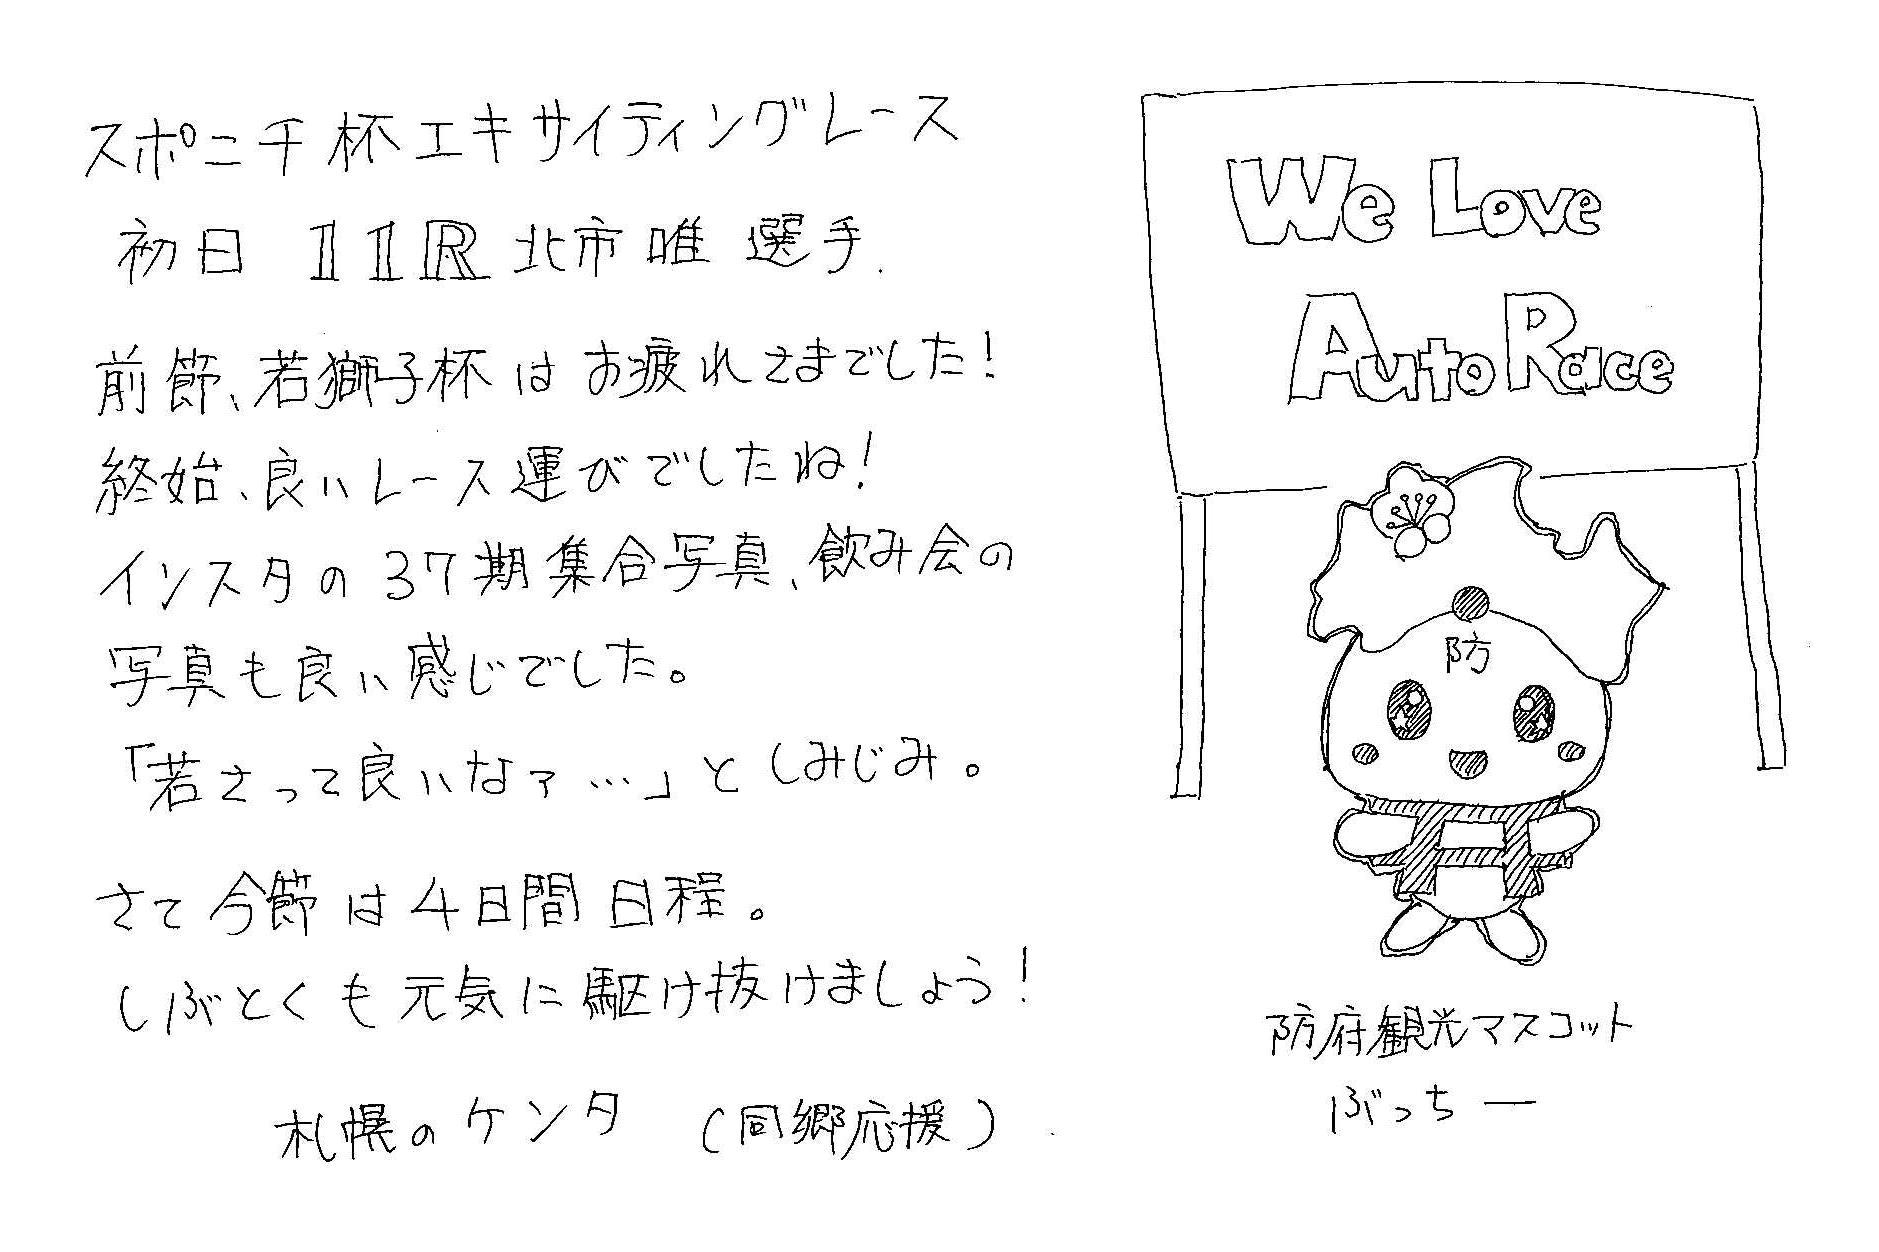 スポニチ杯エキサイティングレース
初日 11R 北市唯 選手.
前節、若獅子杯はお疲れさまでした!
終始、良いレース運びでしたね!
インスタの37期集合写真、飲み会の
写真も良い感じでした。
「若さって良いなァ…」としみじみ。
さて今節は4日間日程。
しぶとくも元気に駆け抜けましょう!
札幌のケンタ (同郷応援)
We Love
Auto Race
防
防府観光マスコット
ぶっちー